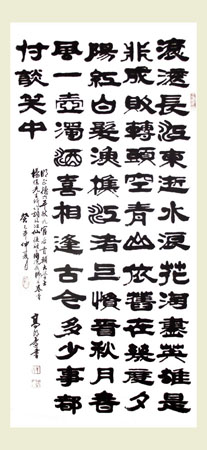 滾滾長江東逝水浪花淘盡英雄是
非成敗轉頭空青山依舊在幾度夕
陽紅白髮漁樵江渚上慣看秋月春
風一壺濁酒喜相逢古今多少事都
付談笑中
癸巳年仲夏月